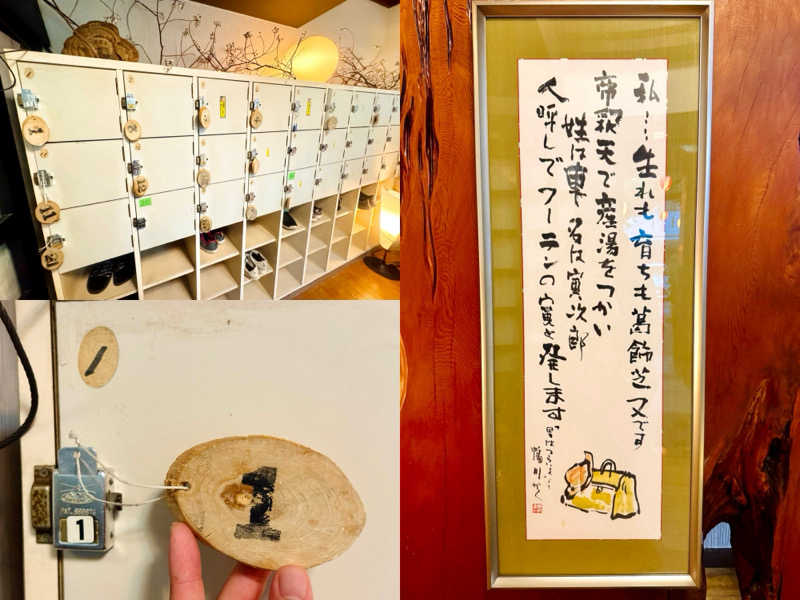 私……生れも育ちも葛飾芝又です
帝釈天で産湯をつかい
姓は車 名は寅次郎
人呼んでフーテンの寅と発します
1
1
11
21